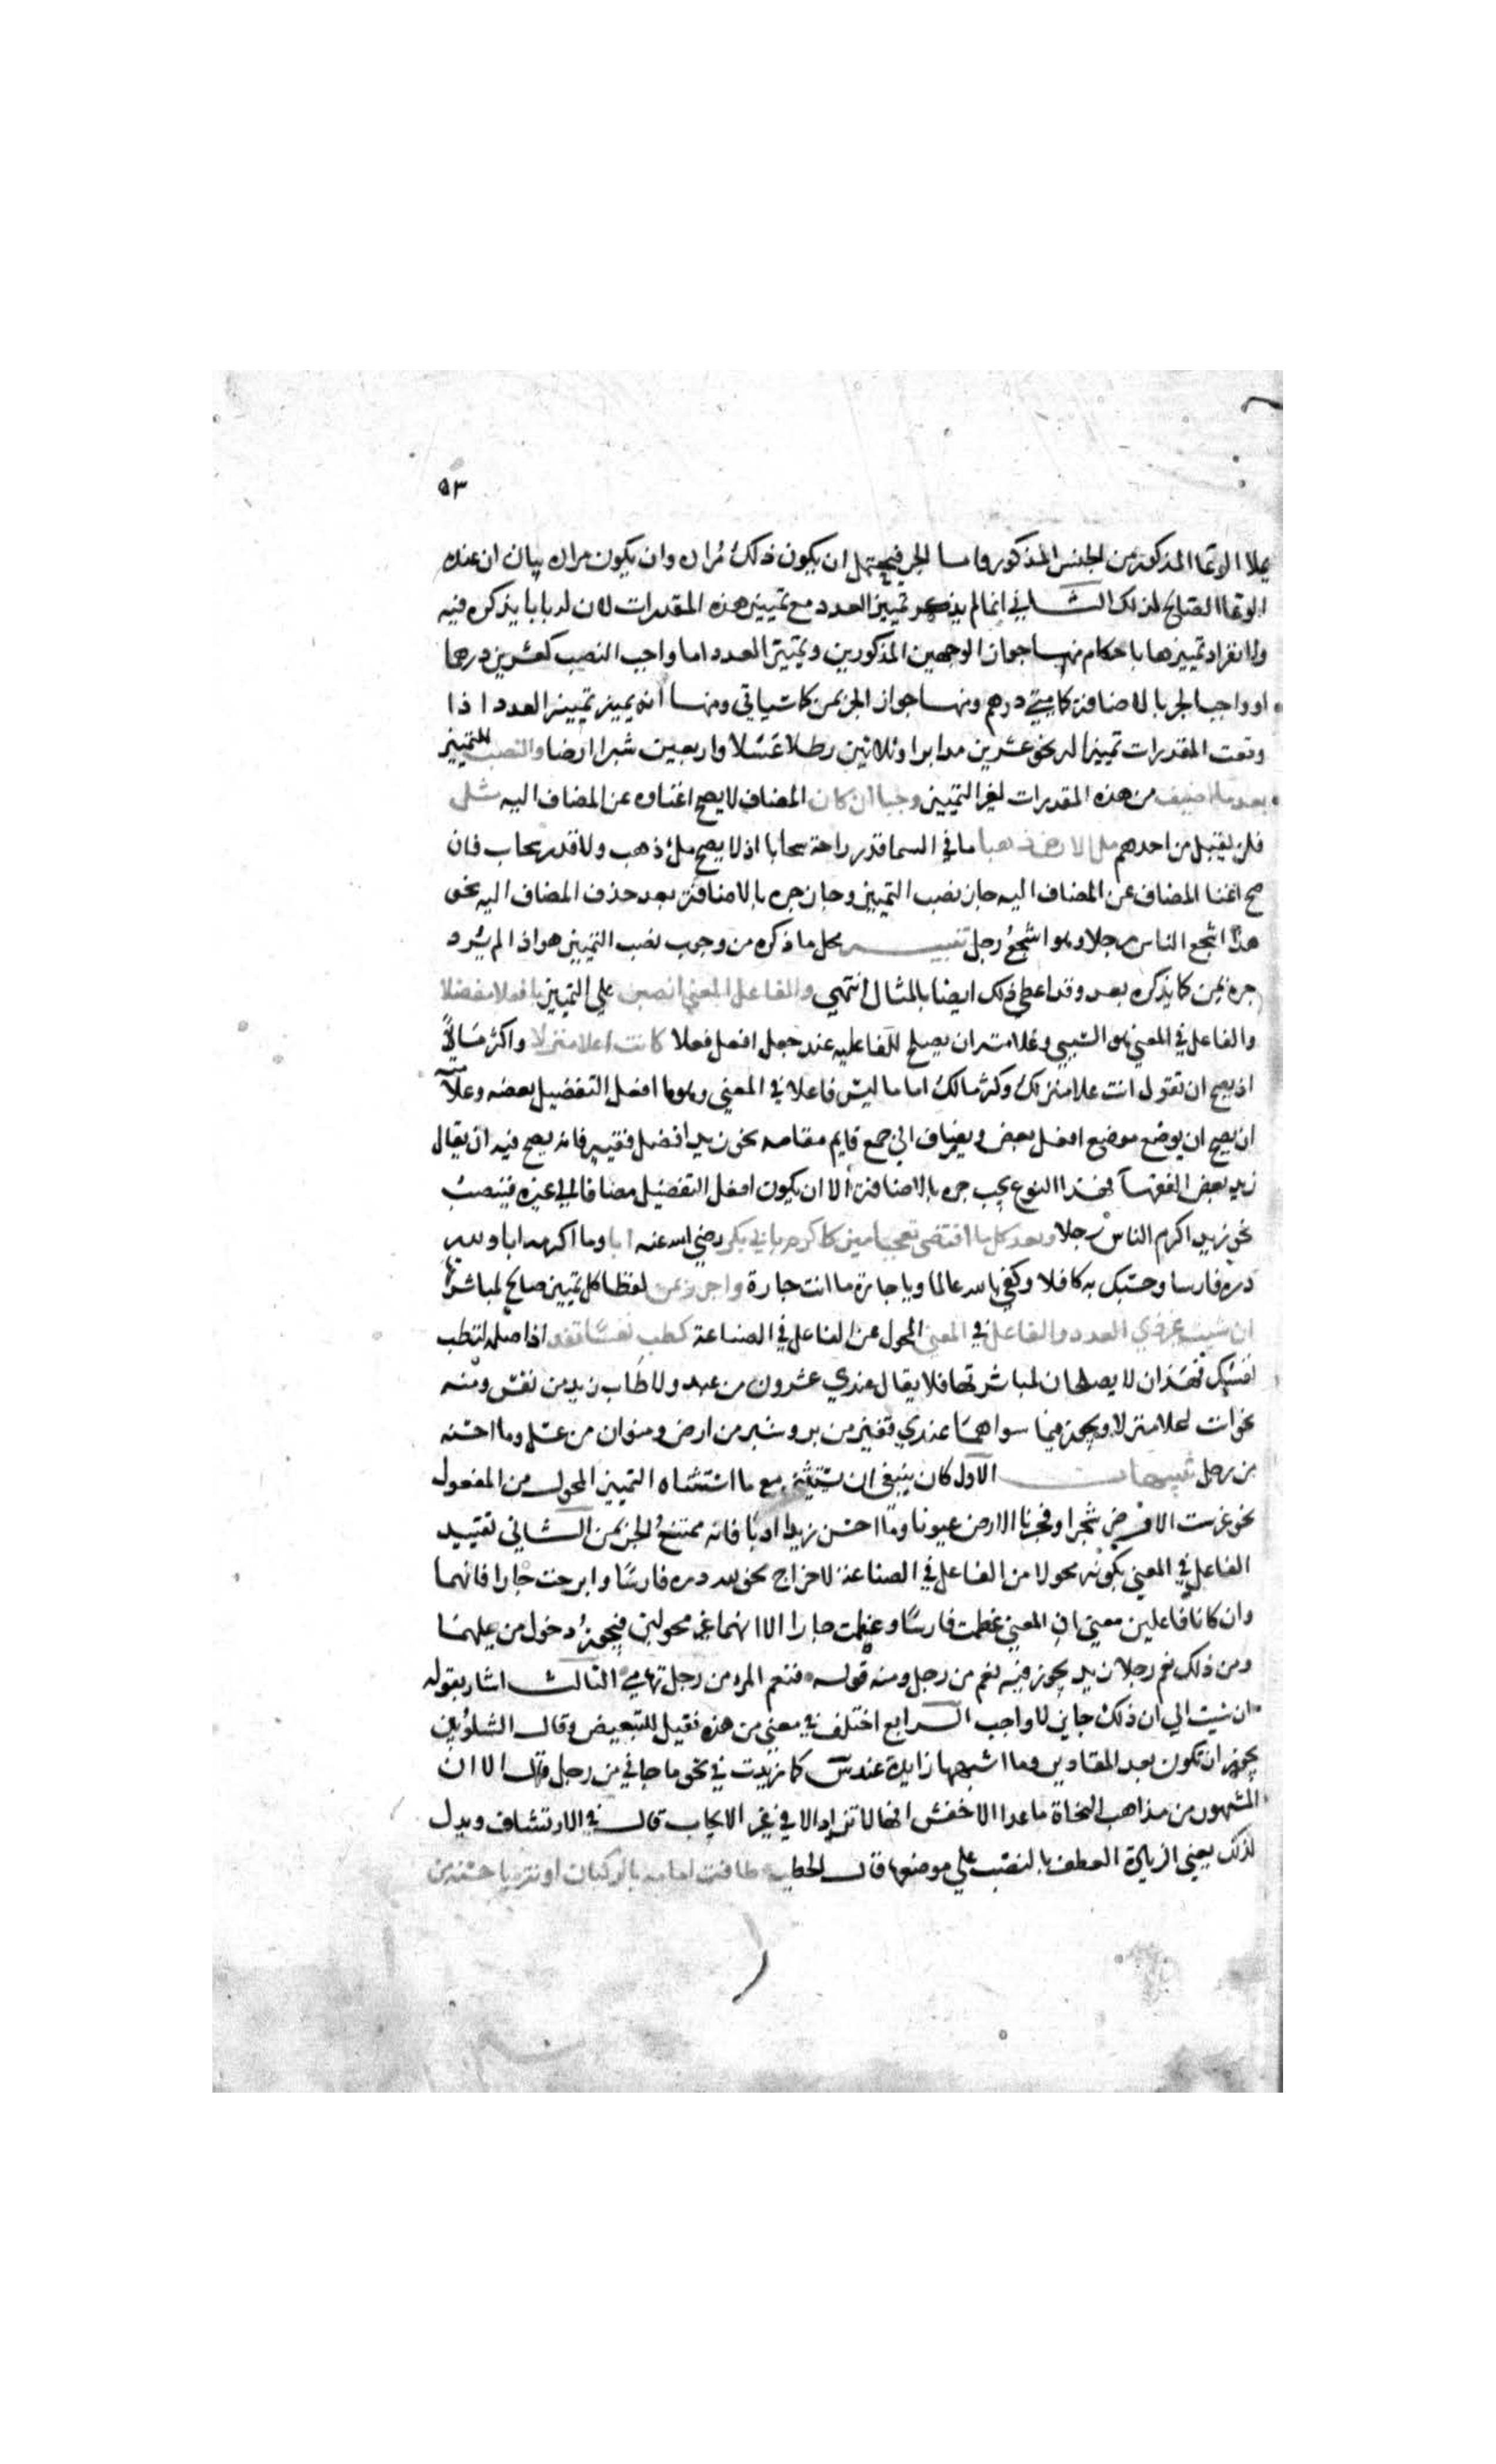 ٥٣
يملا الوعا المذكور من الجنس المذكور واما الجر فيحتمل ان يكون ذلك مراده وان يكون مراده بيان ان عنده
الوعا الصالح لذلك الثاني انما لم يذكر تمييز العدد مع تمييز هذه المقدرات لان له بابا يذكره فيه
ولانفراد تمييزها باحكام منها جواز الوجهين المذكورين وتمييز العدد اما واجب النصب كعشرين درهما
او واجب الجر بالاضافة كمايتي درهم ومنها جواز الجر بمن كما سياتي ومنها انه يميز تمييز العدد اذا
وقعت المقدرات تمييزا له نحو عشرين مدا برا وثلاثين رطلا عسلا واربعين شبرا ارضا والنصب للتمييز
بعد ما اضيف من هذه المقدرات لغير التمييز وجبا ان كان المضاف لا يصح اغناوه عن المضاف اليه مثل
فلن يقبل من احدهم مل الارض ذهبا ما في السما قدر راحة سحابا اذ لا يصح مل ذهب ولا قدر سحاب فان
صح اغنا المضاف عن المضاف اليه جاز نصب التمييز وجاز جره بالاضافة بعد حذف المضاف اليه نحو
هذا اشجع الناس رجلا وهو اشجع رجل تنبيه محل ما ذكره من وجوب نصب التمييز هو اذا لم يرد
جره بمن كما يذكره بعد وقد اعطى ذلك ايضا بالمثال انتهي والفاعل المعني انصبن علي التمييز بافعلا مفضلا
والفاعل في المعني هو السببي وعلامته ان يصلح للفاعليه عند جعل افعل فعلا كانت اعلا منزلا واكثر مالا
اذ يصح ان تقول انت علا منزلك وكثر مالك اما ما ليس فاعلا في المعني وهو ما افعل التفضيل بعضه وعلامته
ان يصح ان يوضع موضع افعل بعض ويضاف الي جمع قايم مقامه نحو زيد افضل فقيه فانه يصح فيه ان يقال
زيد بعض الفقها فهذا النوع يجب جره بالاضافة الا ان يكون افعل التفضيل مضافا الي غيره فينصب
نحو زيد اكرم الناس رجلا وبعد كل ما اقتضى تعجبا ميز كاكرم بابي بكر رضي الله عنه ابا وما اكرمه ابا ولله
دره فارسا وحسبك به كافلا وكفي بالله عالما ويا جارتا ما انت جارة واجرر بمن لفظا كل تمييز صالح لمباشرتها
ان شيت غير ذي العدد والفاعل في المعني المحول عن الفاعل في الصناعة كطب نفسا تفد اذ اصله لتطب
نفسك فهذان لا يصلحان لمباشرتها فلا يقال عندي عشرون من عبد ولا طاب زيد من نفس ومنه
نحو انت اعلا منزلا ويجوز فيما سواهما عندي قفيز من بر وشبر من ارض ومنوان من عسل وما احسنه
من رجل تنبيهات الاول كان ينبغي ان يستثني مع ما استثناه التمييز المحول من المفعول
نحو غرست الارض شجرا وفجرنا الارض عيونا وما احسن زيدا ادبا فانه ممتنع الجر بمن الثاني تقييد
الفاعل في المعني بكونه محولا من الفاعل في الصناعة لاخراج نحو لله دره فارسا وابرحت جارا فانهما
وان كانا فاعلين معني اذ المعني عظمت فارسا وعظمت جارا الا انهما غير محولين فيجوز دخول من عليهما
ومن ذلك نعم رجلا زيد يجوز فيه نعم من رجل ومنه قوله فنعم المرء من رجل تهامي الثالث اشار بقوله
ان شيت الي ان ذلك جايز لا واجب الرابع اختلف في معني من هذه فقيل للتبعيض وقال الشلوبين
يجوز ان تكون بعد المقادير وما اشبهها زايدة عند س كما زيدت في نحو ما جاني من رجل قال الا ان
المشهور من مذاهب النحاة ما عدا الاخفش انها لا تزاد الا في غير الايجاب قال في الارتشاف ويدل
لذلك يعني الزيادة العطف بالنصب علي موضعها قال الحطية طافت امامه بالركبان اونة يا حسنه من